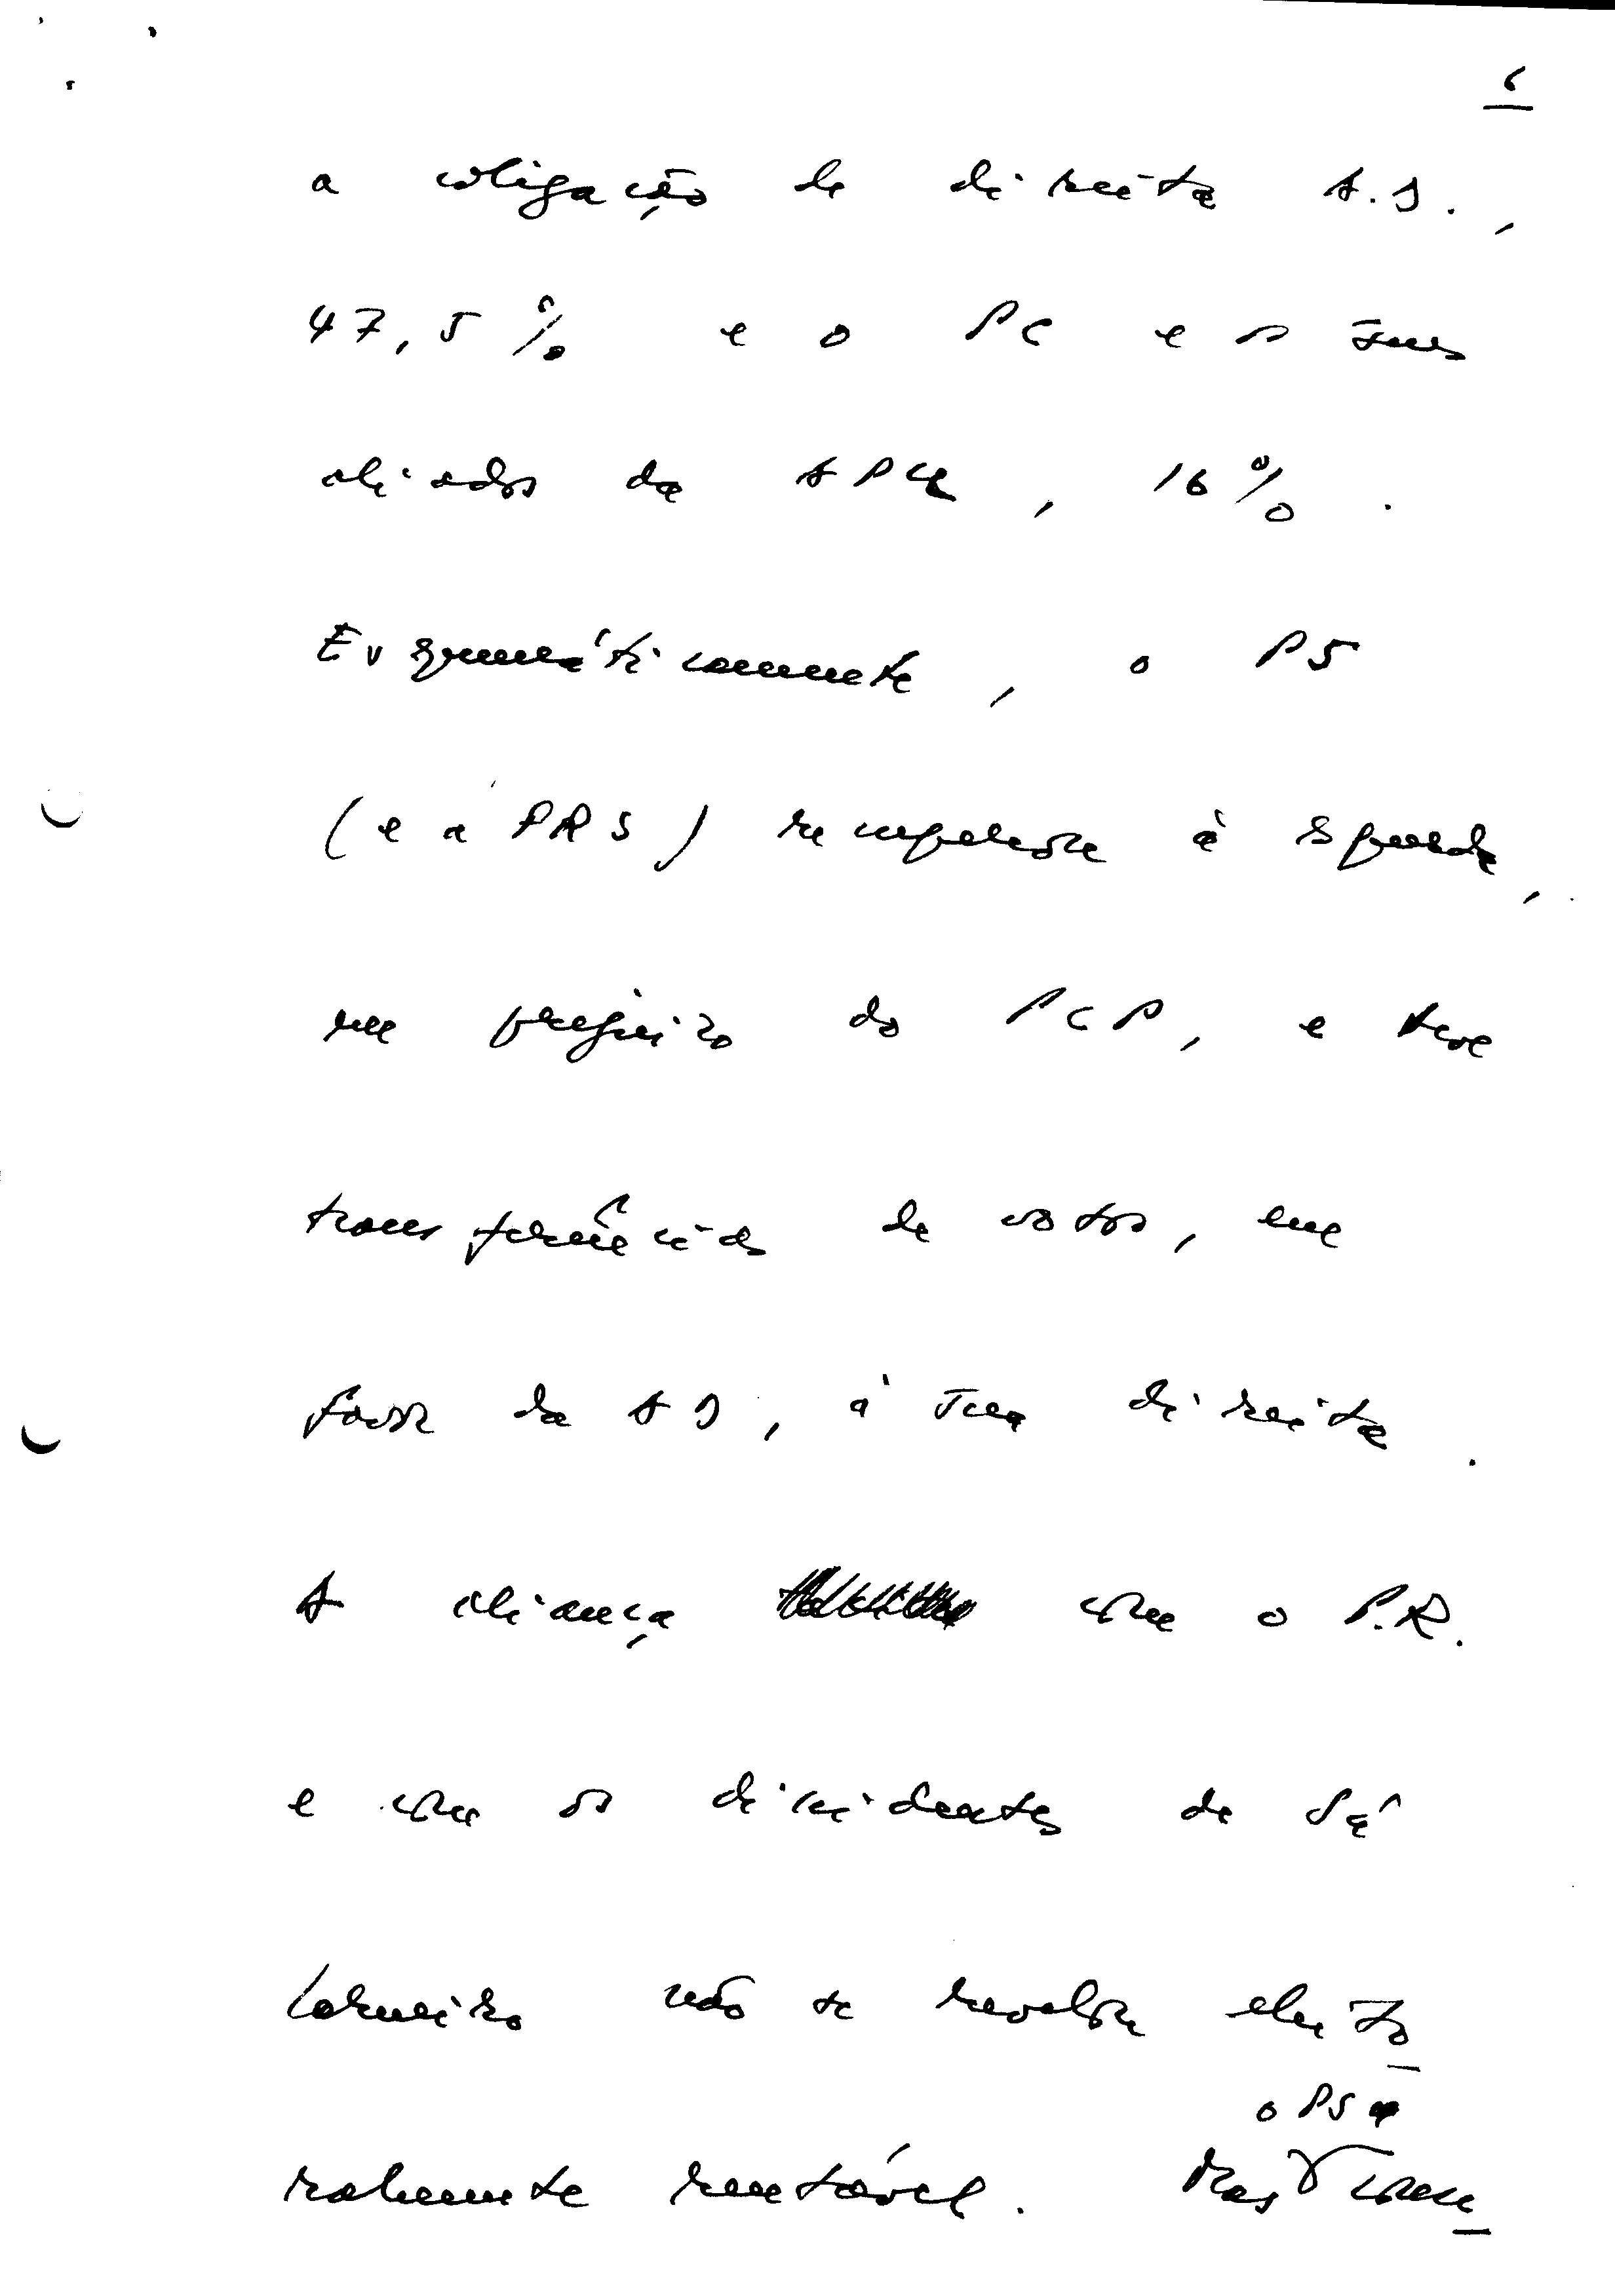 6
a coligação de direita A.D.,
47,5% e o PC e os seus
aliados da APU, 16%.
Esquemáticamente, o PS
(e a FRS) recuperou à esquerda,
em prejuízo do PCP, e teve
transferências de votos, em
favor da AD, à sua direita.
A aliança com o P.R.
e com os dissidentes de Sá
Carneiro não se revelou eleito_
o PS
ralmente rentável. Mas